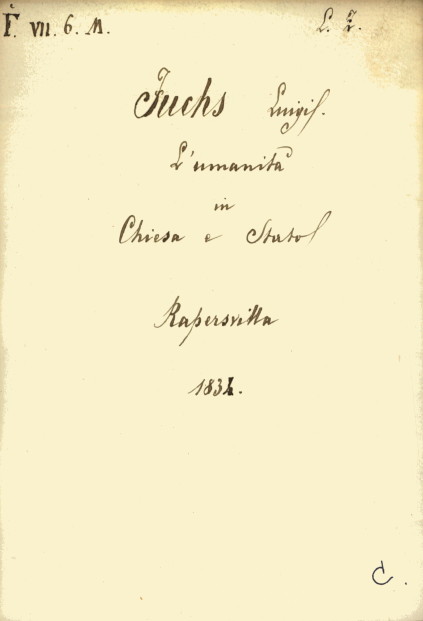 F. VII. 6. M.
L. I.
Fuchs Luigi.
L'umanità
in
Chiesa e Stato
Rapersvilla
1834.
C.